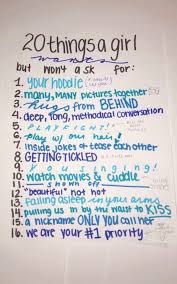 20 things a girl
wants
but won't ask for:
1. your hoodie
2. many, MANY pictures together
3. hugs from BEHIND
4. deep, long, methodical conversation
5. PLAYFIGHT!
6. play w/ our hair!
7. inside jokes & tease each other
8. GETTING TICKLED
9. you singing!
10. watch movies & cuddle
11. shown off
12. "beautiful" not hot
13. falling asleep in your arms
14. pulling us in by the waist to KISS
15. a nickname ONLY YOU call her
16. we are your #1 priority